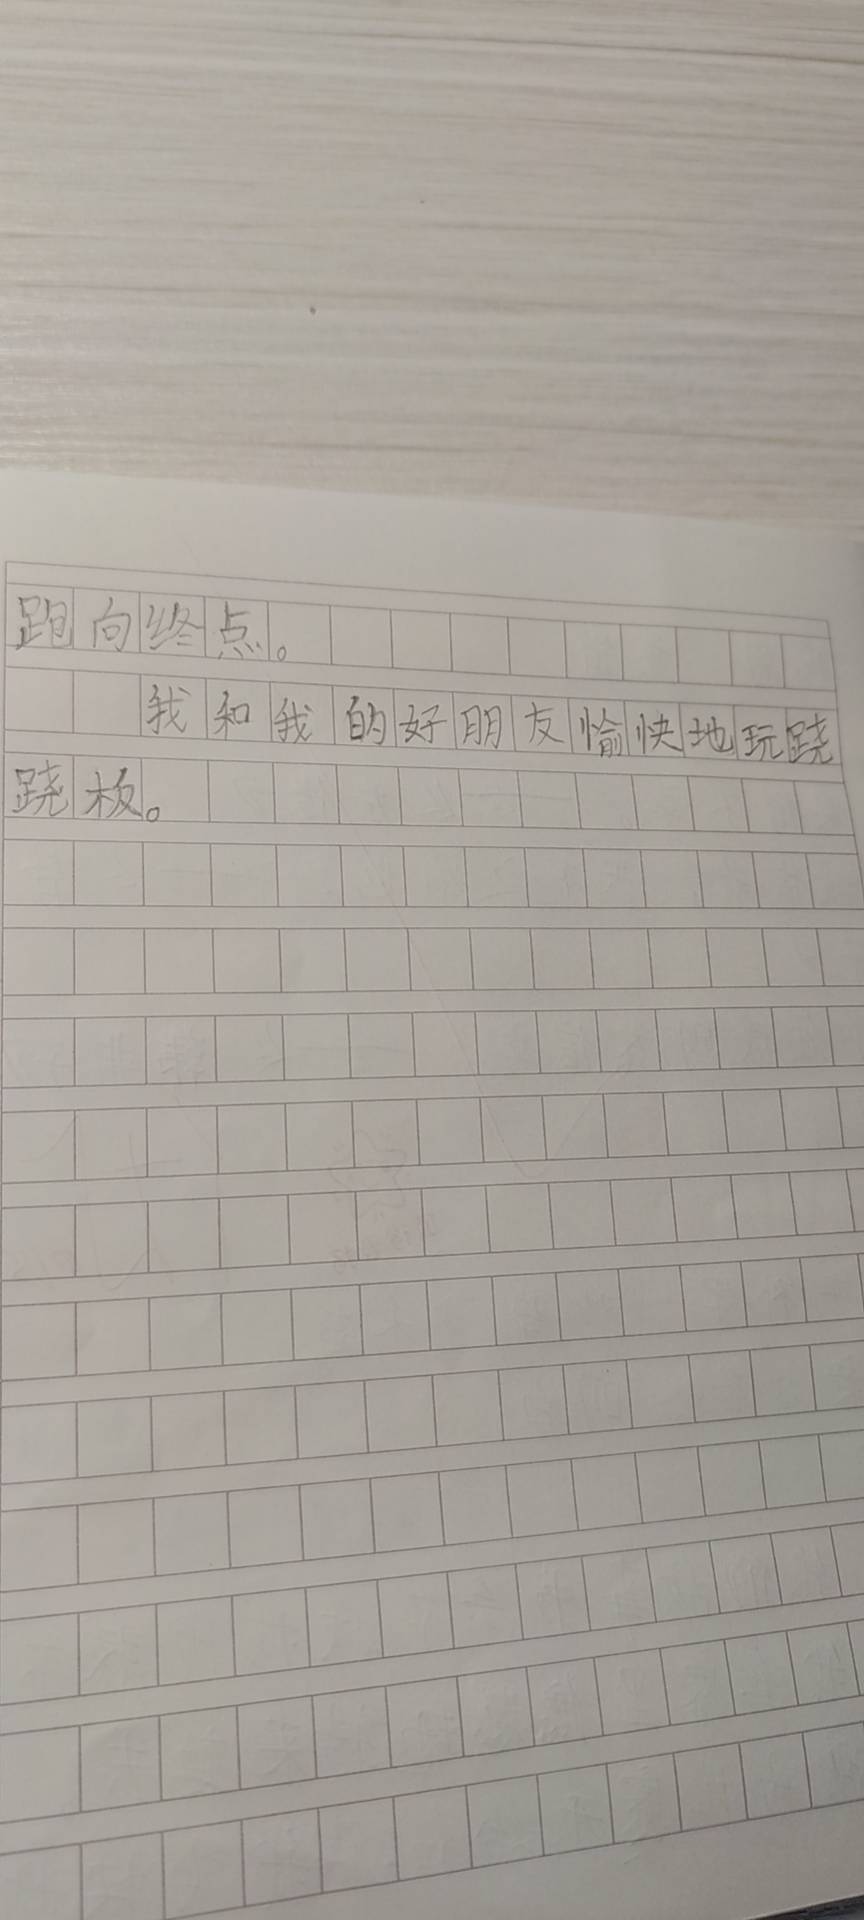 跑向终点。
我和我的好朋友愉快地玩跷
跷板。